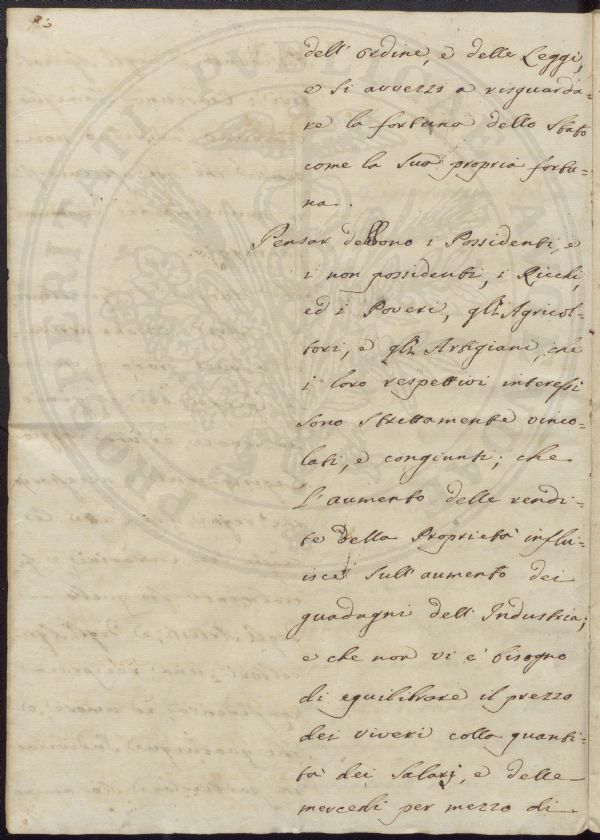 dell' ordine, e delle Leggi,
e si avvezzi a risguarda=
re la fortuna dello Stato
come la sua propria fortu=
na.
Pensar debbono i Possidenti, e
i non possidenti, i Ricchi,
ed i Poveri, gli Agricol=
tori, e gli Artigiani, che
i loro respettivi interessi
sono strettamente vinco=
lati, e congiunti; che
l'aumento delle rendi=
te della Proprietà influ=
isce sull'aumento dei
guadagni dell'Industria;
e che non vi è bisogno
di equilibrare il prezzo
dei viveri colla quanti=
tà dei Salarj, e delle
mercedi per mezzo di
PROSPERITATI PUBLICAE